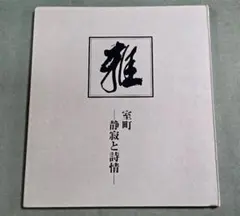 雅
室町
―静寂と詩情―